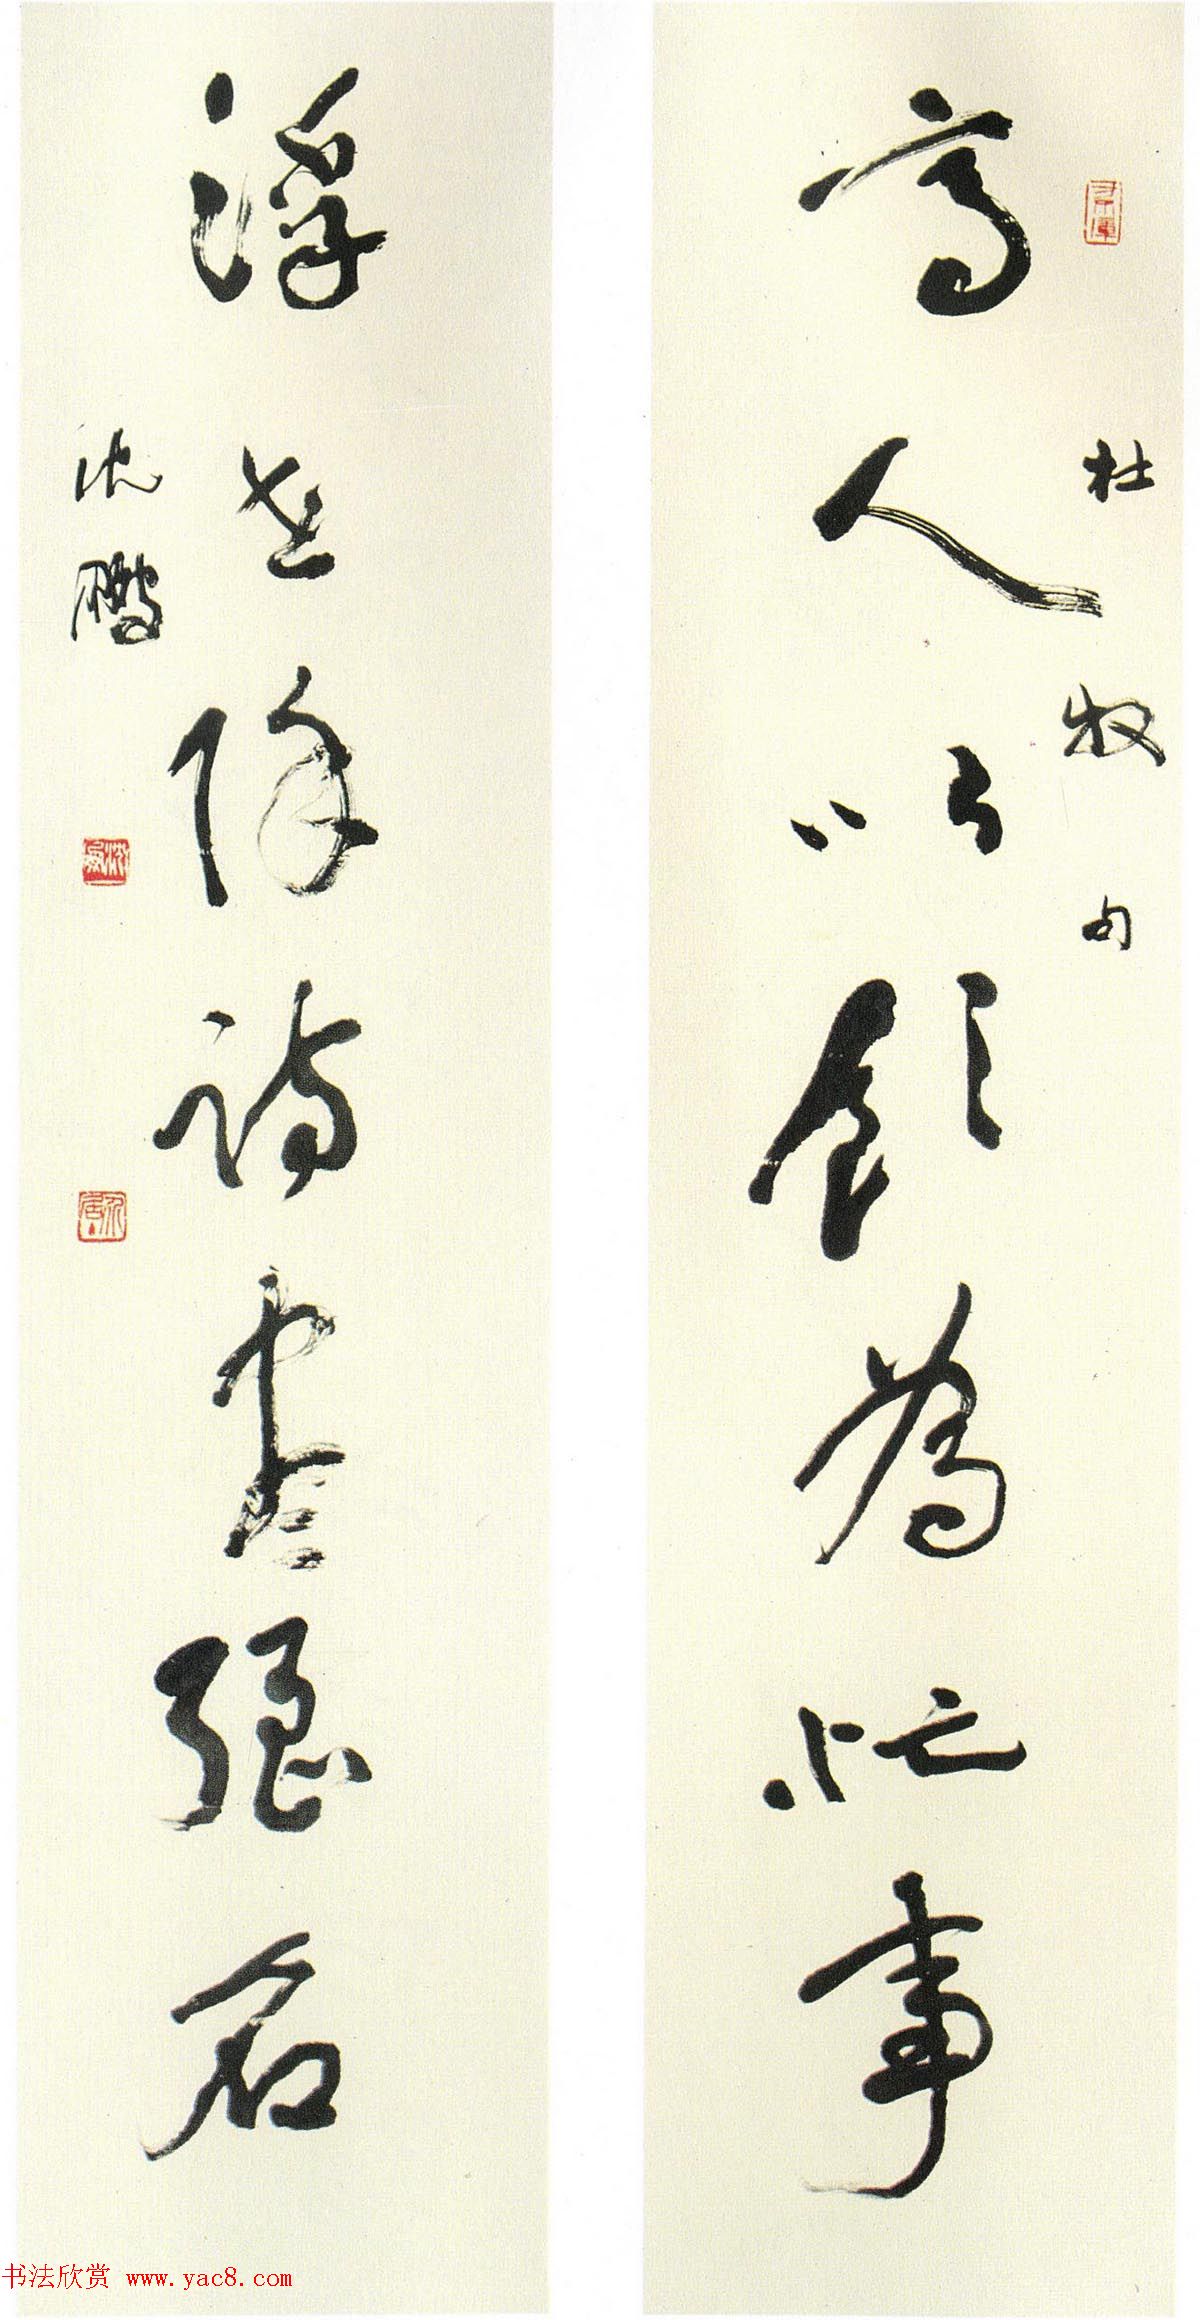 杜牧句
高人以飲為忙事
浮世除詩盡強名
沈鵬
书法欣赏 www.yac8.com